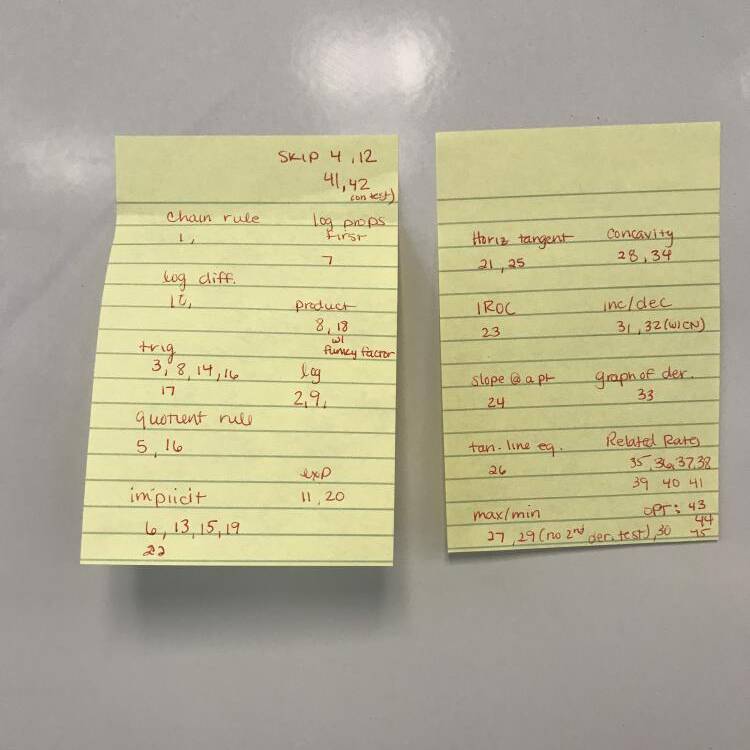 SKIP 4, 12
41, 42
on test)
Chain rule
1,
log props
first
7
log diff.
10,
product
8, 18
w/
funky factor
trig
3, 8, 14, 16
17
log
2, 9,
quotient rule
5, 16
exp
11, 20
implicit
6, 13, 15, 19
22
Horiz tangent
21, 25
Concavity
28, 34
IROC
23
inc/dec
31, 32 (W/CN)
slope @ a pt
24
graph of der.
33
tan-line eq.
26
Related Rates
35, 36, 37, 38
39 40 41
max/min
27, 29 (no 2nd der. test), 30
OPT: 43
44